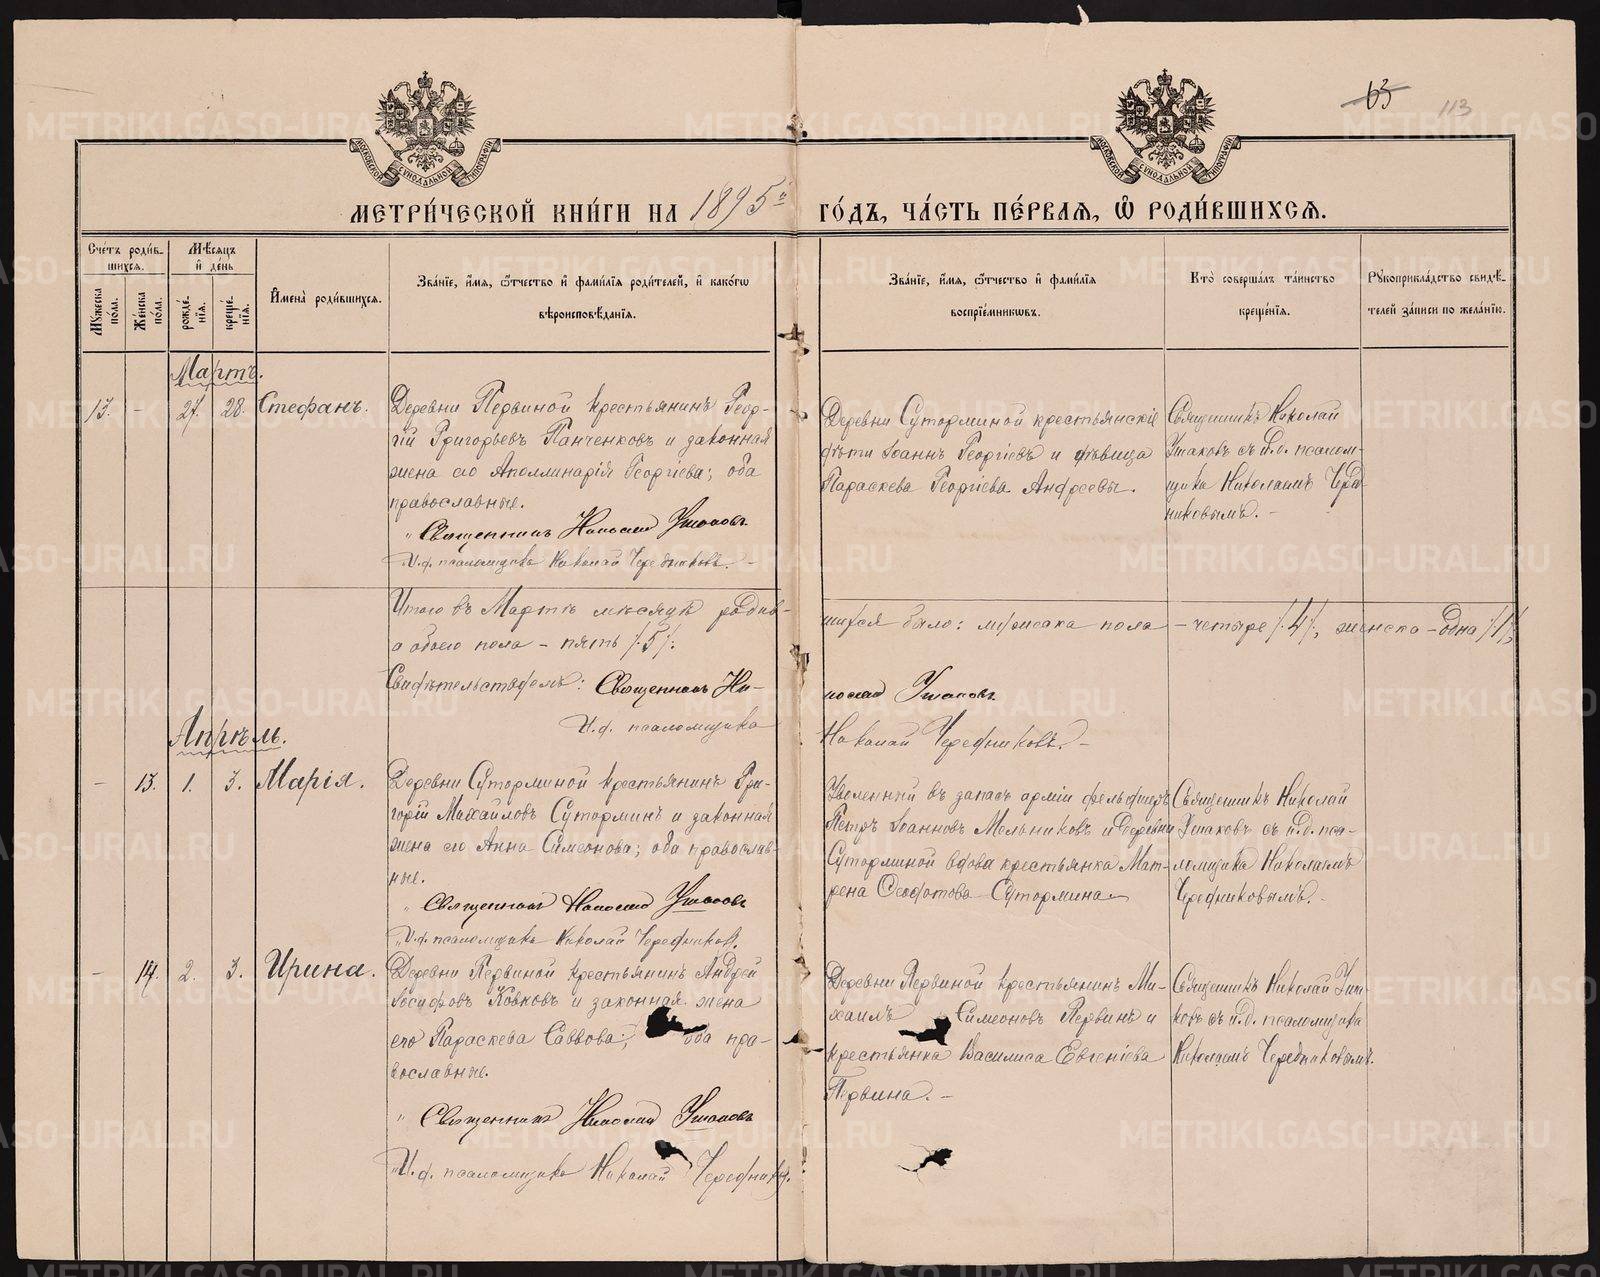 63 113
МОСКОВСКОЙ СѴНОДАЛЬНОЙ ТИПОГРАФІИ
МОСКОВСКОЙ СѴНОДАЛЬНОЙ ТИПОГРАФІИ
МЕТРИ́ЧЕСКОЙ КНИ́ГИ НА 1895й ГО́ДЪ, ЧА́СТЬ ПЕ́РВАЯ, Ѽ РОДИ́ВШИХСЯ.
Сче́тъ роди́в-
шихся.
Мѣ́сяцъ
и҆ де́нь
Мꙋжеска по́ла.
Же́нска по́ла.
рожде́-
нїя.
креще́-
нїя.
И҆мена̀ роди́вшихся.
Зва́нїе, и҆́мя, ѻ҆́тчество и҆ фами́лїя роди́телей, и҆ како́гѡ
вѣроисповѣ́данїя.
Зва́нїе, и҆́мя, ѻ҆́тчество и҆ фами́лїя
воспрїе́мникѡвъ.
Кто̀ соверша́лъ та́инство
креще́нїя.
Рꙋкоприкла́дство свидѣ́-
телей за́писи по жела́нїю.
Мартъ.
13. - 27. 28. Стефанъ.
Деревни Первиной крестьянинъ Геор-
гій Григорьевъ Панченковъ и законная
жена его Аполлинарія Георгіева; оба
православные.
„Священникъ Николай Ушаковъ
И.д. псаломщика Николай Чередниковъ. -
Деревни Суторминой крестьянскіе
дѣти Іоаннъ Георгіевъ и дѣвица
Параскева Георгіева Андреевы.
Священникъ Николай
Ушаковъ съ и.д. псалом-
щика Николаемъ Черед-
никовымъ. -
Итого въ Мартѣ мѣсяцѣ родив-
шихся было: мужска пола - четыре /.4/., женска - одна /.1/.,
а обоего пола - пять /.5/.
Свидѣтельствуемъ: Священникъ Ни-
колай Ушаковъ
И.д. псаломщика
Николай Чередниковъ. -
Апрѣль.
- 13. 1. 3. Марія.
Деревни Суторминой крестьянинъ Гри-
горій Михайловъ Суторминъ и законная
жена его Анна Симеонова; оба православ-
ные.
„Священникъ Николай Ушаковъ
„И.д. псаломщика Николай Чередниковъ.
Уволенный въ запасъ арміи фельдшеръ
Петръ Іоанновъ Мельниковъ и деревни
Суторминой вдова крестьянка Мат-
рена Ѳеодотова Сутормина
Священникъ Николай
Ушаковъ съ и.д. пса-
ломщика Николаемъ
Чередниковымъ. -
- 14. 2. 3. Ирина.
Деревни Первиной крестьянинъ Андрей
Іосифовъ Ковковъ и законная жена
его Параскева Саввова; оба пра-
вославные.
„Священникъ Николай Ушаковъ
„И.д. псаломщика Николай Чередниковъ.
Деревни Первиной крестьянинъ Ми-
хаилъ Симеоновъ Первинъ и
крестьянка Василиса Евгеніева
Первина. -
Священникъ Николай Уша-
ковъ съ и.д. псаломщика
Николаемъ Чередниковымъ.
METRIKI.GASO-URAL.RU